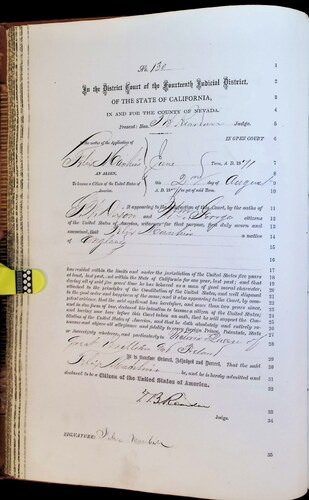 No. 130
In the District Court of the Fourteenth Judicial District.
OF THE STATE OF CALIFORNIA,
IN AND FOR THE COUNTY OF NEVADA.
Present: Hon. Judge.
In the matter of the Application of
IN OPEN COURT
June Term, A. D. 1871
AN ALIEN,
To become a Citizen of the United States of
this 2nd day of August
A. D. of said Term.
It appearing to the satisfaction of this Court, by the oaths of
and citizens
of the United States of America, witnesses for that purpose, first duly sworn and
examined, that a native
of England
has resided within the limits and under the jurisdiction of the United States five years
at least, last past, and within the State of California for one year, last past; and that
during all of said five years' time he has behaved as a man of good moral character,
attached to the principles of the Constitution of the United States, and well disposed
to the good order and happiness of the same; and it also appearing to the Court, by competent
evidence, that the said applicant has heretofore, and more than two years since,
and in due form of law, declared his intention to become a citizen of the United States;
and having now here before this Court taken an oath, that he will support the Constitution
of the United States of America, and that he doth absolutely and entirely renounce
and abjure all allegiance and fidelity to every foreign Prince, Potentate, State
or Sovereignty whatever, and particularly to Victoria Queen of
Great Brittain & Ireland
It is therefore Ordered, Adjudged and Decreed, That the said
be, and he is hereby admitted and
declared to be a Citizen of the United States of America.
Judge.
SIGNATURE:
1
2
3
4
5
6
7
8
9
10
11
12
13
14
15
16
17
18
19
20
21
22
23
24
25
26
27
28
29
30
31
32
33
34
35